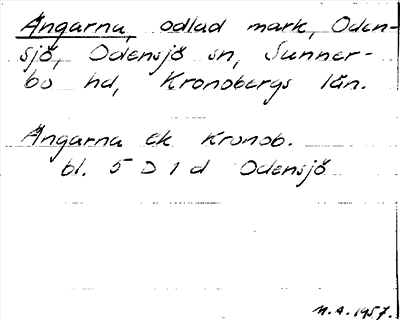 Ängarna, odlad mark, Oden-
sjö, Odensjö sn, Sunner-
bo hd, Kronobergs län.
Ängarna ek Kronob.
bl. 5 D 1 d Odensjö
N.A. 1957.